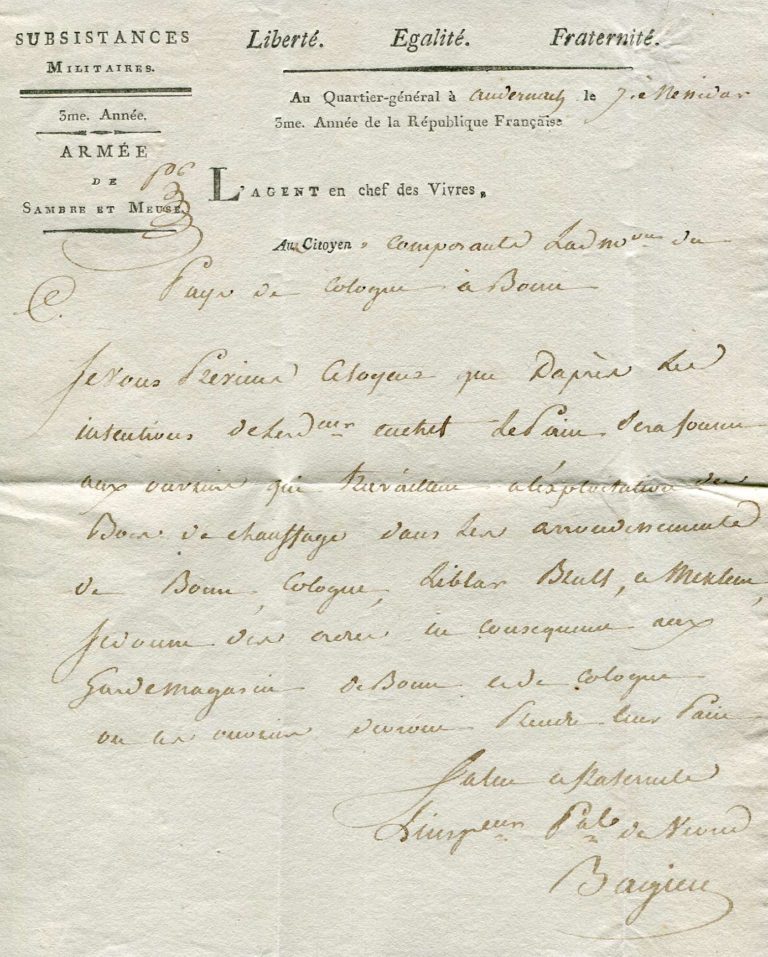 SUBSISTANCES
MILITAIRES.
3me. Année.
ARMÉE
DE
SAMBRE ET MEUSE.
Liberté. Egalité. Fraternité.
Au Quartier-général à andernach le 7 Messidor
3me. Année de la République Française
L'AGENT en chef des Vivres,
Au Citoyen composant Ladmon du
Pays de Cologne à Bonn
Je vous Previens Citoyens que Daprès Les
intentions de Le Pain Sera fourni
aux ouvriers qui travaillent a l'exploitation des
Bois de chauffage dans Les arrondissements
de Bonn, Cologne, Liblar Brull, a
Je donne des ordres en consequence aux
Garde magasin de Bonn et de Cologne
ou les ouvriers devront Prendre leur Pain
Salut et fraternité
L'inspeur Pal de Vivres